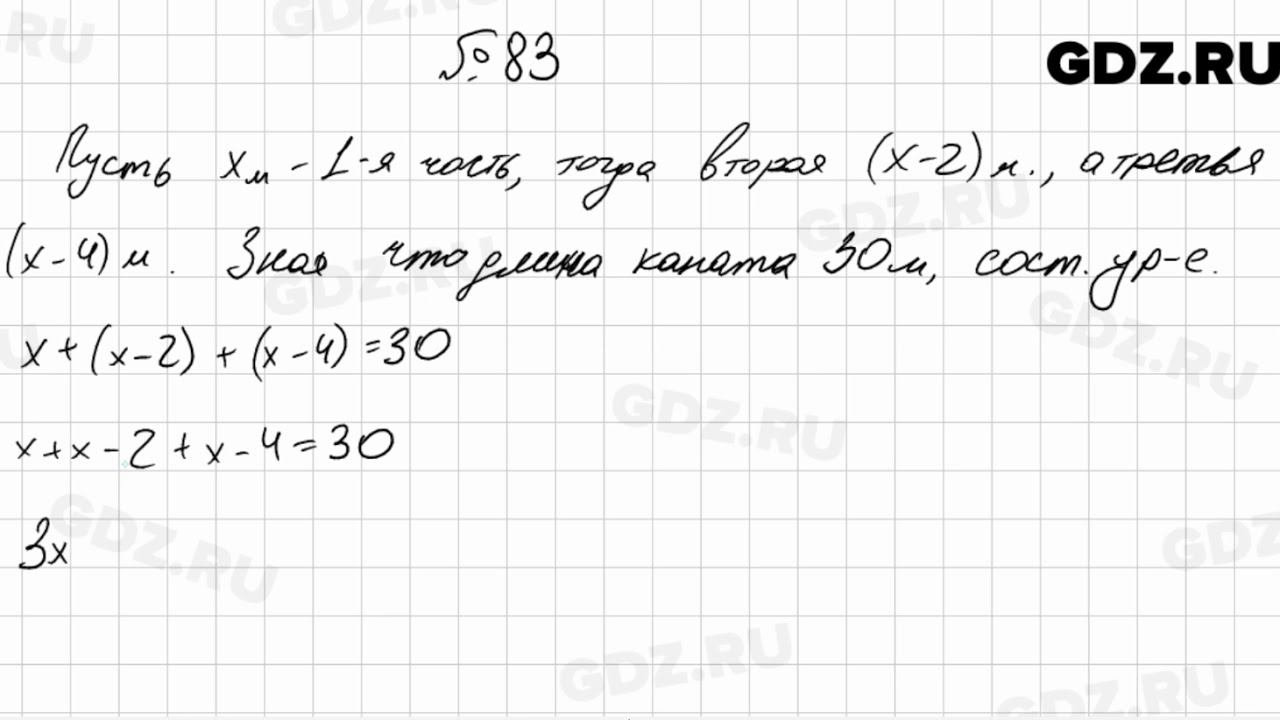 № 83
GDZ.RU
Пусть x м - 1-я часть, тогда вторая (x-2) м., а третья
(x-4) м. Зная что длина каната 30 м, сост. ур-е.
x + (x-2) + (x-4) = 30
x + x - 2 + x - 4 = 30
3x